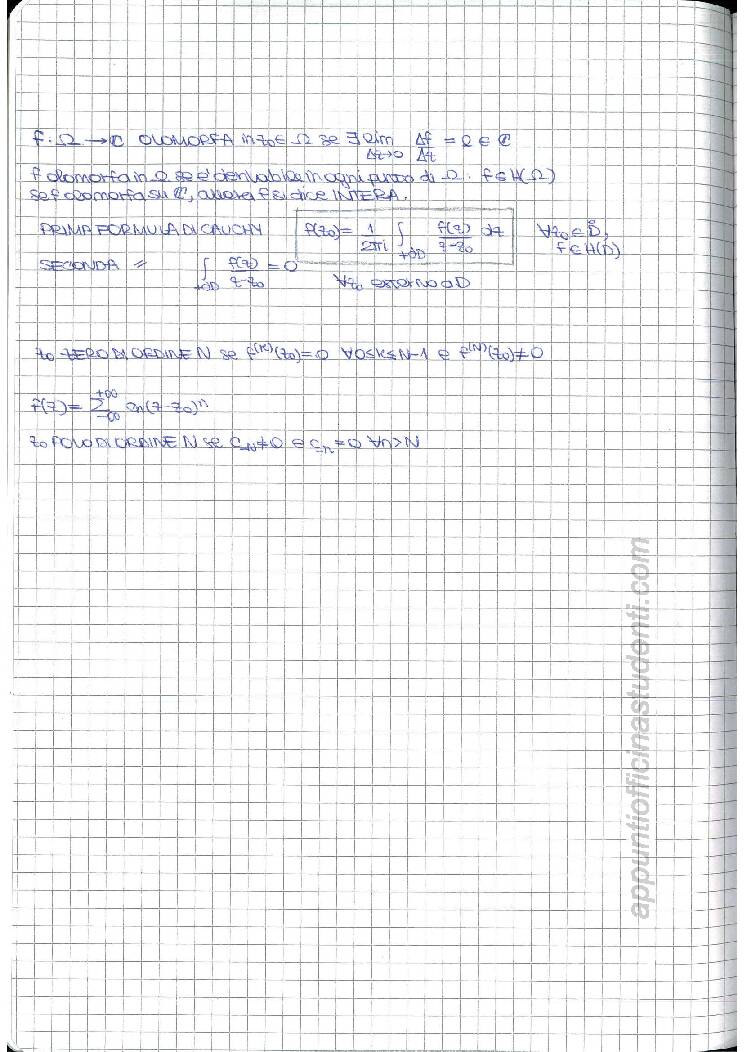 f: Ω → ℂ OLOMORFA in z₀ ∈ Ω se ∃ lim_{Δz→0} Δf/Δz = l ∈ ℂ
f olomorfa in Ω se è derivabile in ogni punto di Ω. f ∈ H(Ω)
Se f olomorfa su ℂ, allora f si dice INTERA.
PRIMA FORMULA DI CAUCHY f(z₀) = 1/2πi ∫_{+∂D} f(z)/z-z₀ dz ∀z₀ ∈ D̊, f ∈ H(D)
SECONDA " ∫_{+∂D} f(z)/z-z₀ = 0 ∀z₀ esterno a D
z₀ ZERO DI ORDINE N se f^(k)(z₀)=0 ∀0≤k≤N-1 e f^(N)(z₀)≠0
f(z) = Σ_{-∞}^{+∞} cn(z-z₀)ⁿ
z₀ POLO DI ORDINE N se c_{-N}≠0 e c_{-n}=0 ∀n>N
appuntiofficinastudenti.com